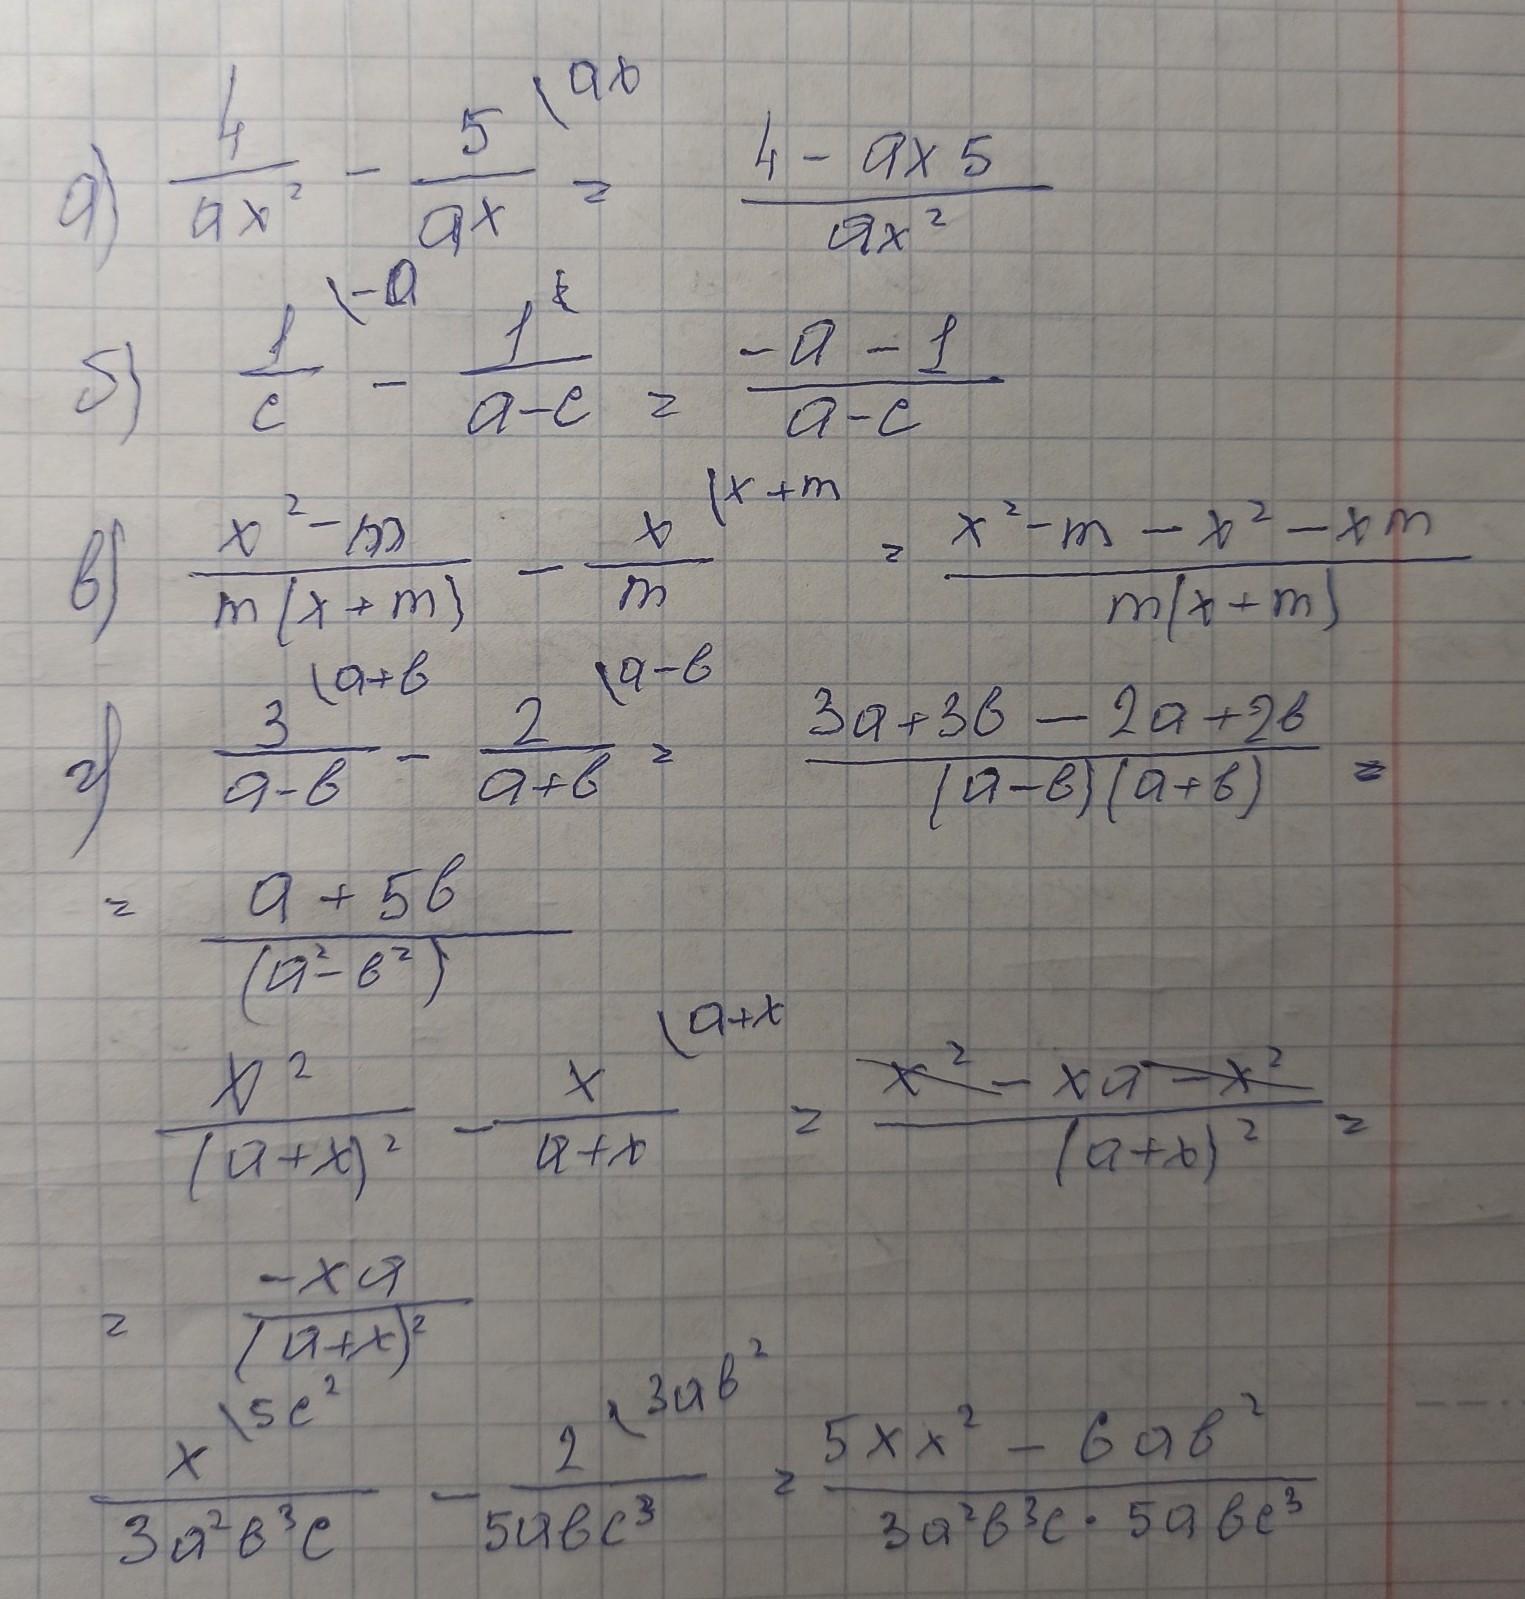 а) 4/ax² - 5/ax \ax = (4 - ax5)/ax²
б) 1/c \-a - 1/(a-c) = (-a - 1)/(a-c)
в) (x² - m)/(m(x+m)) - x/m \x+m = (x² - m - x² - xm)/(m(x+m))
г) 3/(a-b) \a+b - 2/(a+b) \a-b = (3a+3b - 2a+2b)/((a-b)(a+b)) =
= (a + 5b)/(a²-b²)
x²/(a+x)² - x/(a+x) \a+x = (x² - xa - x²)/(a+x)² =
= -xa/(a+x)²
x/(3a²b³c) \5c² - 2/(5abc³) \3ab² = (5xx² - 6ab²)/(3a²b³c · 5abc³)